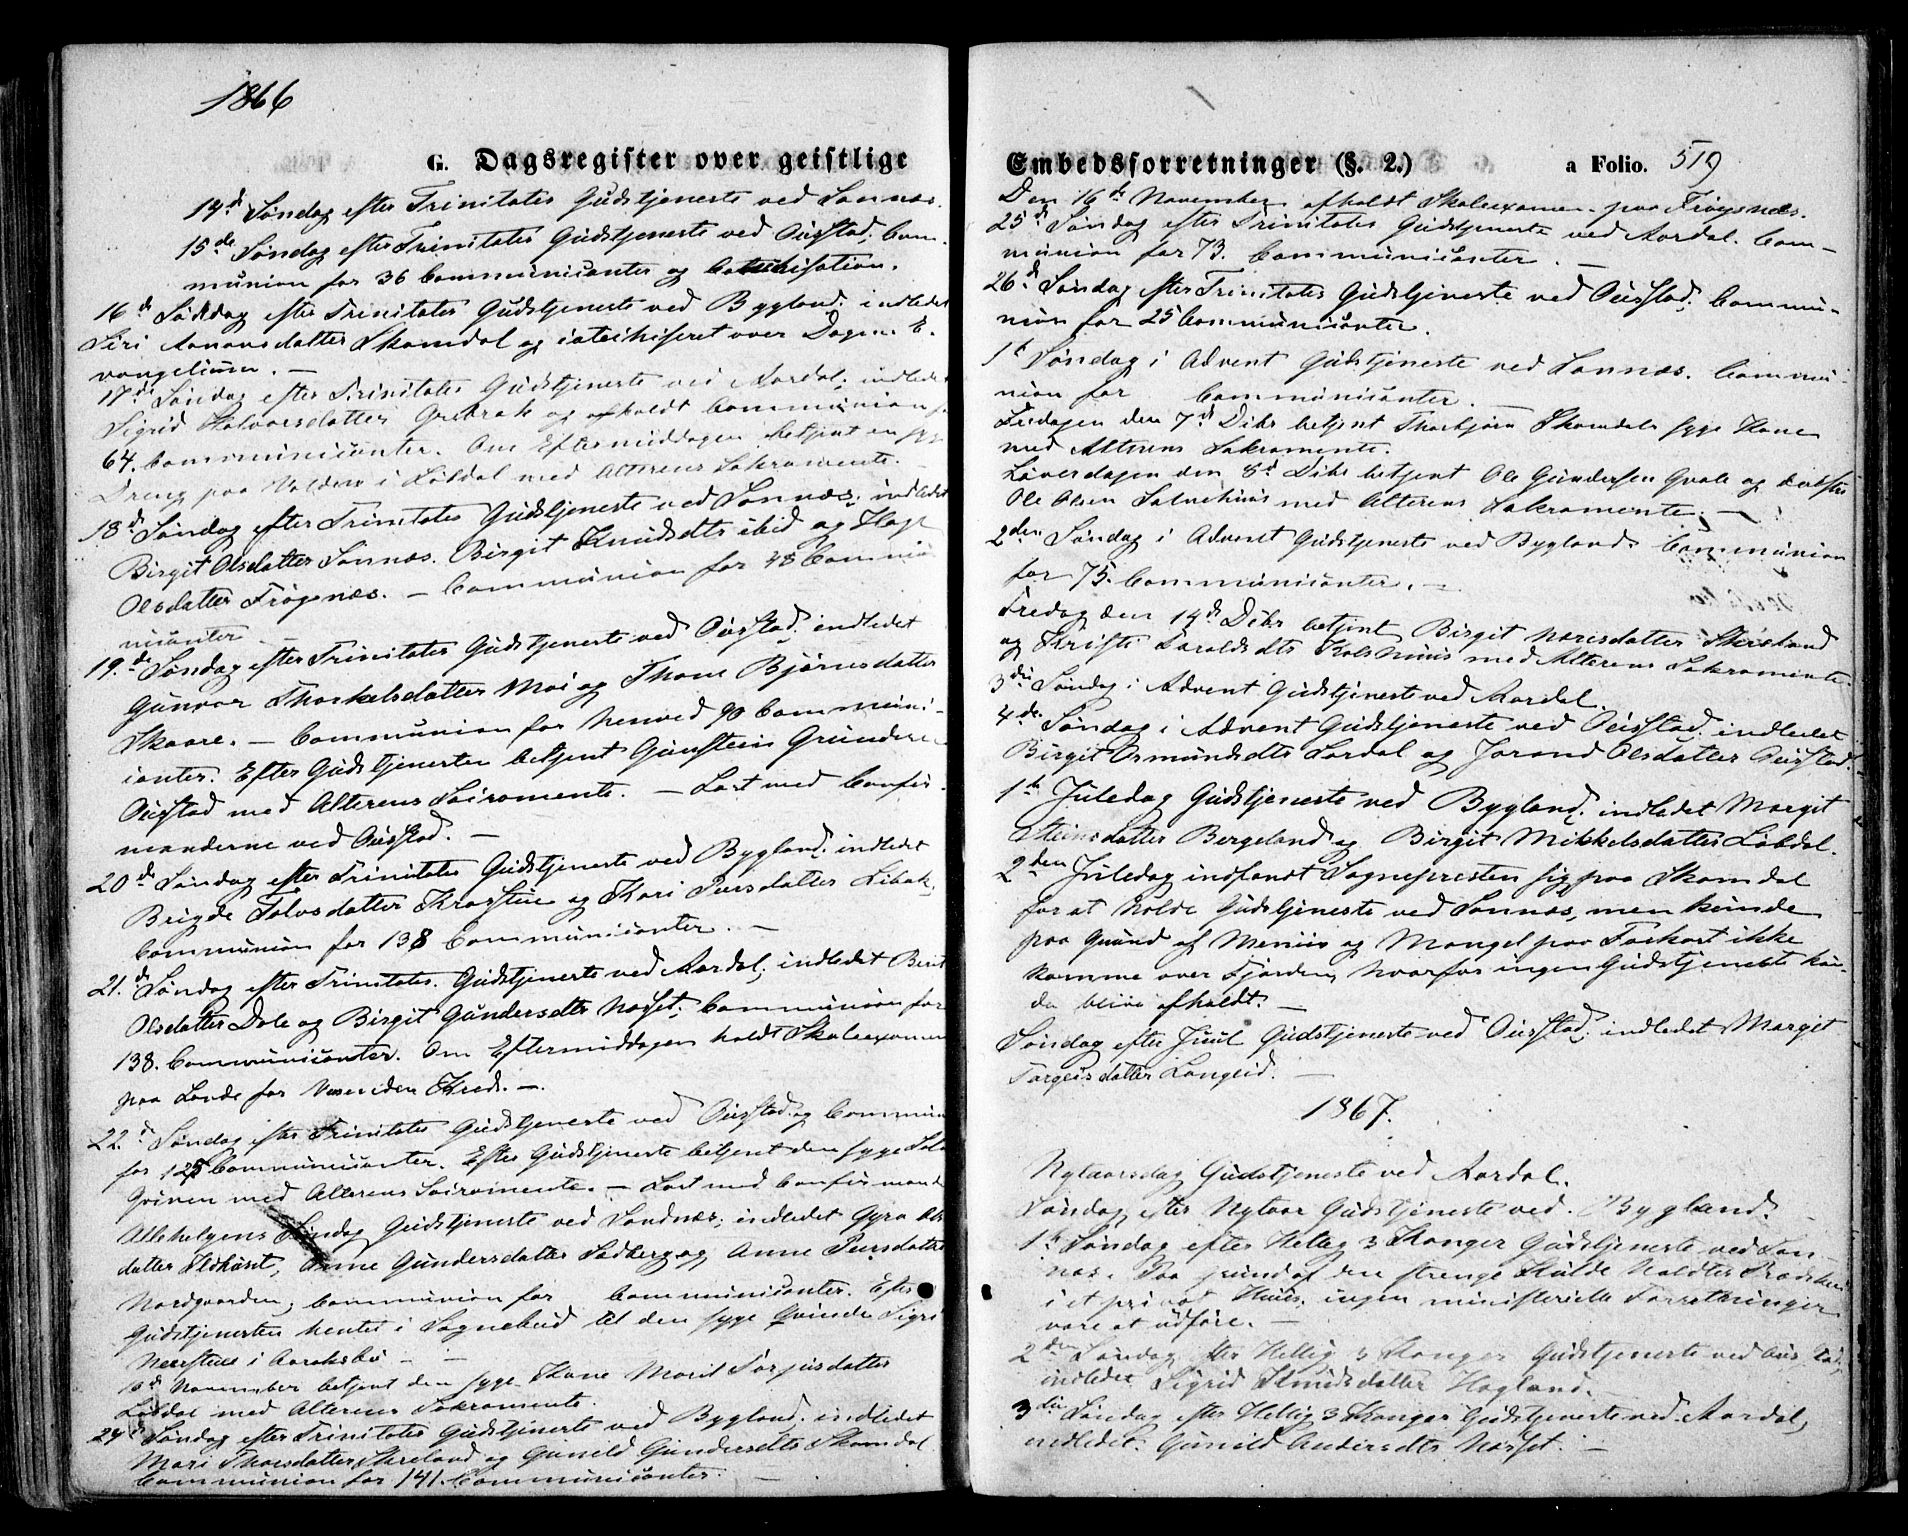 1866
G. Dagsregister over geistlige
14d Søndag efter Trinitatis Gudstjeneste ved Sannæs.
15de Søndag efter Trinitatis Gudstjeneste ved Ousstad; Com-
munion for 36 Communicanter og Catechisation.
16d Søndag efter Trinitatis Gudstjeneste ved Bygland; indledet
Siri Aanonsdatter Skamdal og catechiseret over Dagens E-
vangelium. —
17de Søndag efter Trinitatis Gudstjeneste ved Aardal; indledet
Sigrid Halvorsdatter og afholdt Communion for
64. Communicanter. Om Eftermiddagen betjent en syg
Dreng paa i Lobdal med Alterens Sakramente.
18d Søndag efter Trinitatis Gudstjeneste ved Sannæs; indledet
Birgit Olsdatter Sannæs. Birgit Knudsdtr ibid og
Olsdatter Frøysnæs. — Communion for 48 Commu-
nicanter. —
19de Søndag efter Trinitatis Gudstjeneste ved Ousstad; indledet
Gunvor Thorkelsdatter Moi og Thone Bjørnsdatter
Skaare. — Communion for henved 90 Communi-
canter. Efter Gudstjenesten betjent Gunstein
Ousstad med Alterens Sacramente. — Læst med Confir-
manderne ved Ousstad. —
20d Søndag efter Trinitatis Gudstjeneste ved Bygland; indledet
Brigde Tolvsdatter og Kari Persdatter
Communion for 138 Communicanter. —
21d Søndag efter Trinitatis. Gudstjeneste ved Aardal; indledet Berit
Olsdatter Dale og Birgit Gundersdtr Næset; Communion for
138. Communicanter. Om Eftermiddagen holdt Skoleexamen
paa Lande for Kreds. —
22d Søndag efter Trinitatis Gudstjeneste ved Ousstad og Communion
for 125 Communicanter. Efter Gudstjeneste betjent den syge
med Alterens Sacramente. — Læst med Confirmand
Allehelgens Søndag Gudstjeneste ved Sandnæs; indledet Gyro Ols
datter, Anne Gundersdatter og Anne Persdatter
Nordgaarden; Communion for Communicanter. Efter
Gudstjenesten hentet i Sognebud til den syge Qvinde Sigri
i
10d November betjent den syge Kone Marit Torjusdatter
Lobdal med Alterens Sakramente.
24d Søndag efter Trinitatis Gudstjeneste ved Bygland; indledet
Mari Thorsdatter Skreland og Gunild Gundersdtr Skamdal
Communion for 141. Communicanter. —
Embedsforretninger (§. 2.) a Folio. 519
Den 16de November afholdt Skoleexamen paa Frøysnæs.
25d Søndag efter Trinitatis Gudstjeneste ved Aardal. Com-
munion for 73. Communicanter. —
26d Søndag efter Trinitatis Gudstjeneste ved Ousstad; Commu-
nion for 25 Communicanter.
1st Søndag i Advent Gudstjeneste ved Sannæs. Commu-
nion for Communicanter. —
Fredagen den 7d Dcbr betjent Thorbjørn Skamdals syge Kone
med Alterens Sakramente.
Løverdagen den 8d Dcbr betjent Ole Gundersen og
Ole Olsen med Alterens Sakramente. —
2den Søndag i Advent Gudstjeneste ved Bygland. Communion
for 75. Communicanter. —
Fredag den 14d Dcbr betjent Birgit Skreland
og med Alterens Sakramente.
3die Søndag i Advent Gudstjeneste ved Aardal.
4de Søndag i Advent Gudstjeneste ved Ousstad; indledet
Birgit Osmundsdtr Sordal og Jorand Olsdatter Ousstad.
1ste Juledag Gudstjeneste ved Bygland; indledet Margit
Steinsdatter Bergeland og Birgit Mikkelsdatter Lobdal.
2den Juledag indfandt Sognepresten sig paa Skamdal
for at holde Gudstjeneste ved Sannæs, men kunde
paa Grund af Meniis og Mangel paa Forkost ikke
komme over Fjorden, hvorfor ingen Gudstjeneste kun-
de blive afholdt. —
Søndag efter Juul Gudstjeneste ved Ousstad; indledet Margit
Targeisdatter Langeid. —
1867.
Nytaarsdag Gudstjeneste ved Aardal.
Søndag efter Nytaar Gudstjeneste ved. Bygland.
1st Søndag efter Hellig 3 Konger Gudstjeneste ved San-
næs. Paa Grund af den strenge Kulde holdtes Prædiken
i et privat Huus. ingen ministerielle Forretninger
vare at udføre. —
2den Søndag efter Hellig 3 Konger Gudstjeneste ved Ousstad;
indledet Sigrid Knudsdatter Hagland.
3die Søndag efter Hellig 3 Konger Gudstjeneste ved Aardal;
indledet: Gunild Andersdtr Næset. —